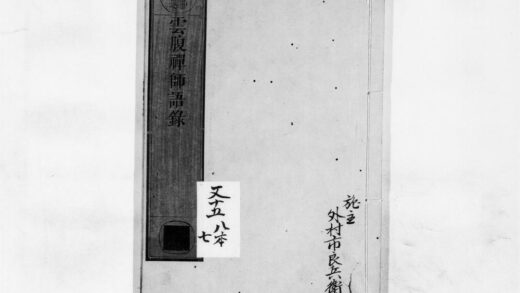 雲腹禪師語錄
又十五 八本
七
施主
外村市良兵衛